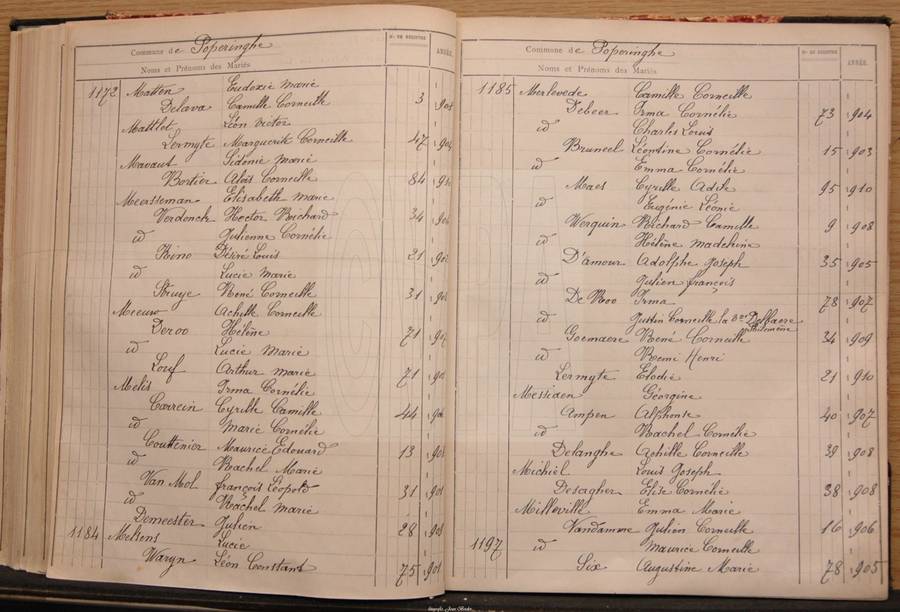 Commune de Poperinghe
Nos DE REGISTRE
ANNÉE
Noms et Prénoms des Mariés
1172 Matton Eudoxie Marie
Delava Camille Corneille 3 904
Mattlet Léon Victor
Lermyte Marguerite Corneille 47
Maeaut Sidonie Marie
Bortier Aloïs Corneille 84
Meersseman Elisabeth Marie
Verdonck Hector Richard 34
id Julienne Cornélie
Rino Désiré Louis 21
id Lucie Marie
Struye René Corneille 31
Meeuw Achille Corneille
Deroo Hélène 71
id Lucie Marie
Louf Arthur Marie 71
Melis Irma Cornélie
Carrein Cyrille Camille 44
id Marie Cornélie
Couttenier Maurice Edouard 13
id Rachel Marie
Van Mol François Léopold 31 901
id Rachel Marie
Demeester Julien 28
1184 Melsens Lucie
Waryn Léon Constant 75 901
Commune de Poperinghe
Nos DE REGISTRE
ANNÉE.
Noms et Prénoms des Mariés
1185 Merlevede Camille Corneille
Debeer Irma Cornélie 73 904
id Charles Louis
Bruneel Léontine Cornélie 15 903
id Emma Cornélie
Maes Cyrille Adile 95 910
id Eugénie Léonie
Werquin Richard Camille 9 908
id Hélène Madeleine
D'amour Adolphe Joseph 35 905
id Julien François
De Roo Irma 78 907
id Justin Corneille la Delbaere Philomène
Goemaere René Corneille 34 909
id Remi Henri
Lermyte Elodie 21 910
Messiaen Géorgine
Ampen Alphonse 40 907
id Rachel Cornélie
Delanghe Achille Corneille 39 908
Michiel Louis Joseph
Desagher Elise Cornélie 38 908
Milleville Emma Marie
Vandamme Julien Corneille 16 906
1197 id Maurice Corneille
Six Augustine Marie 78 905